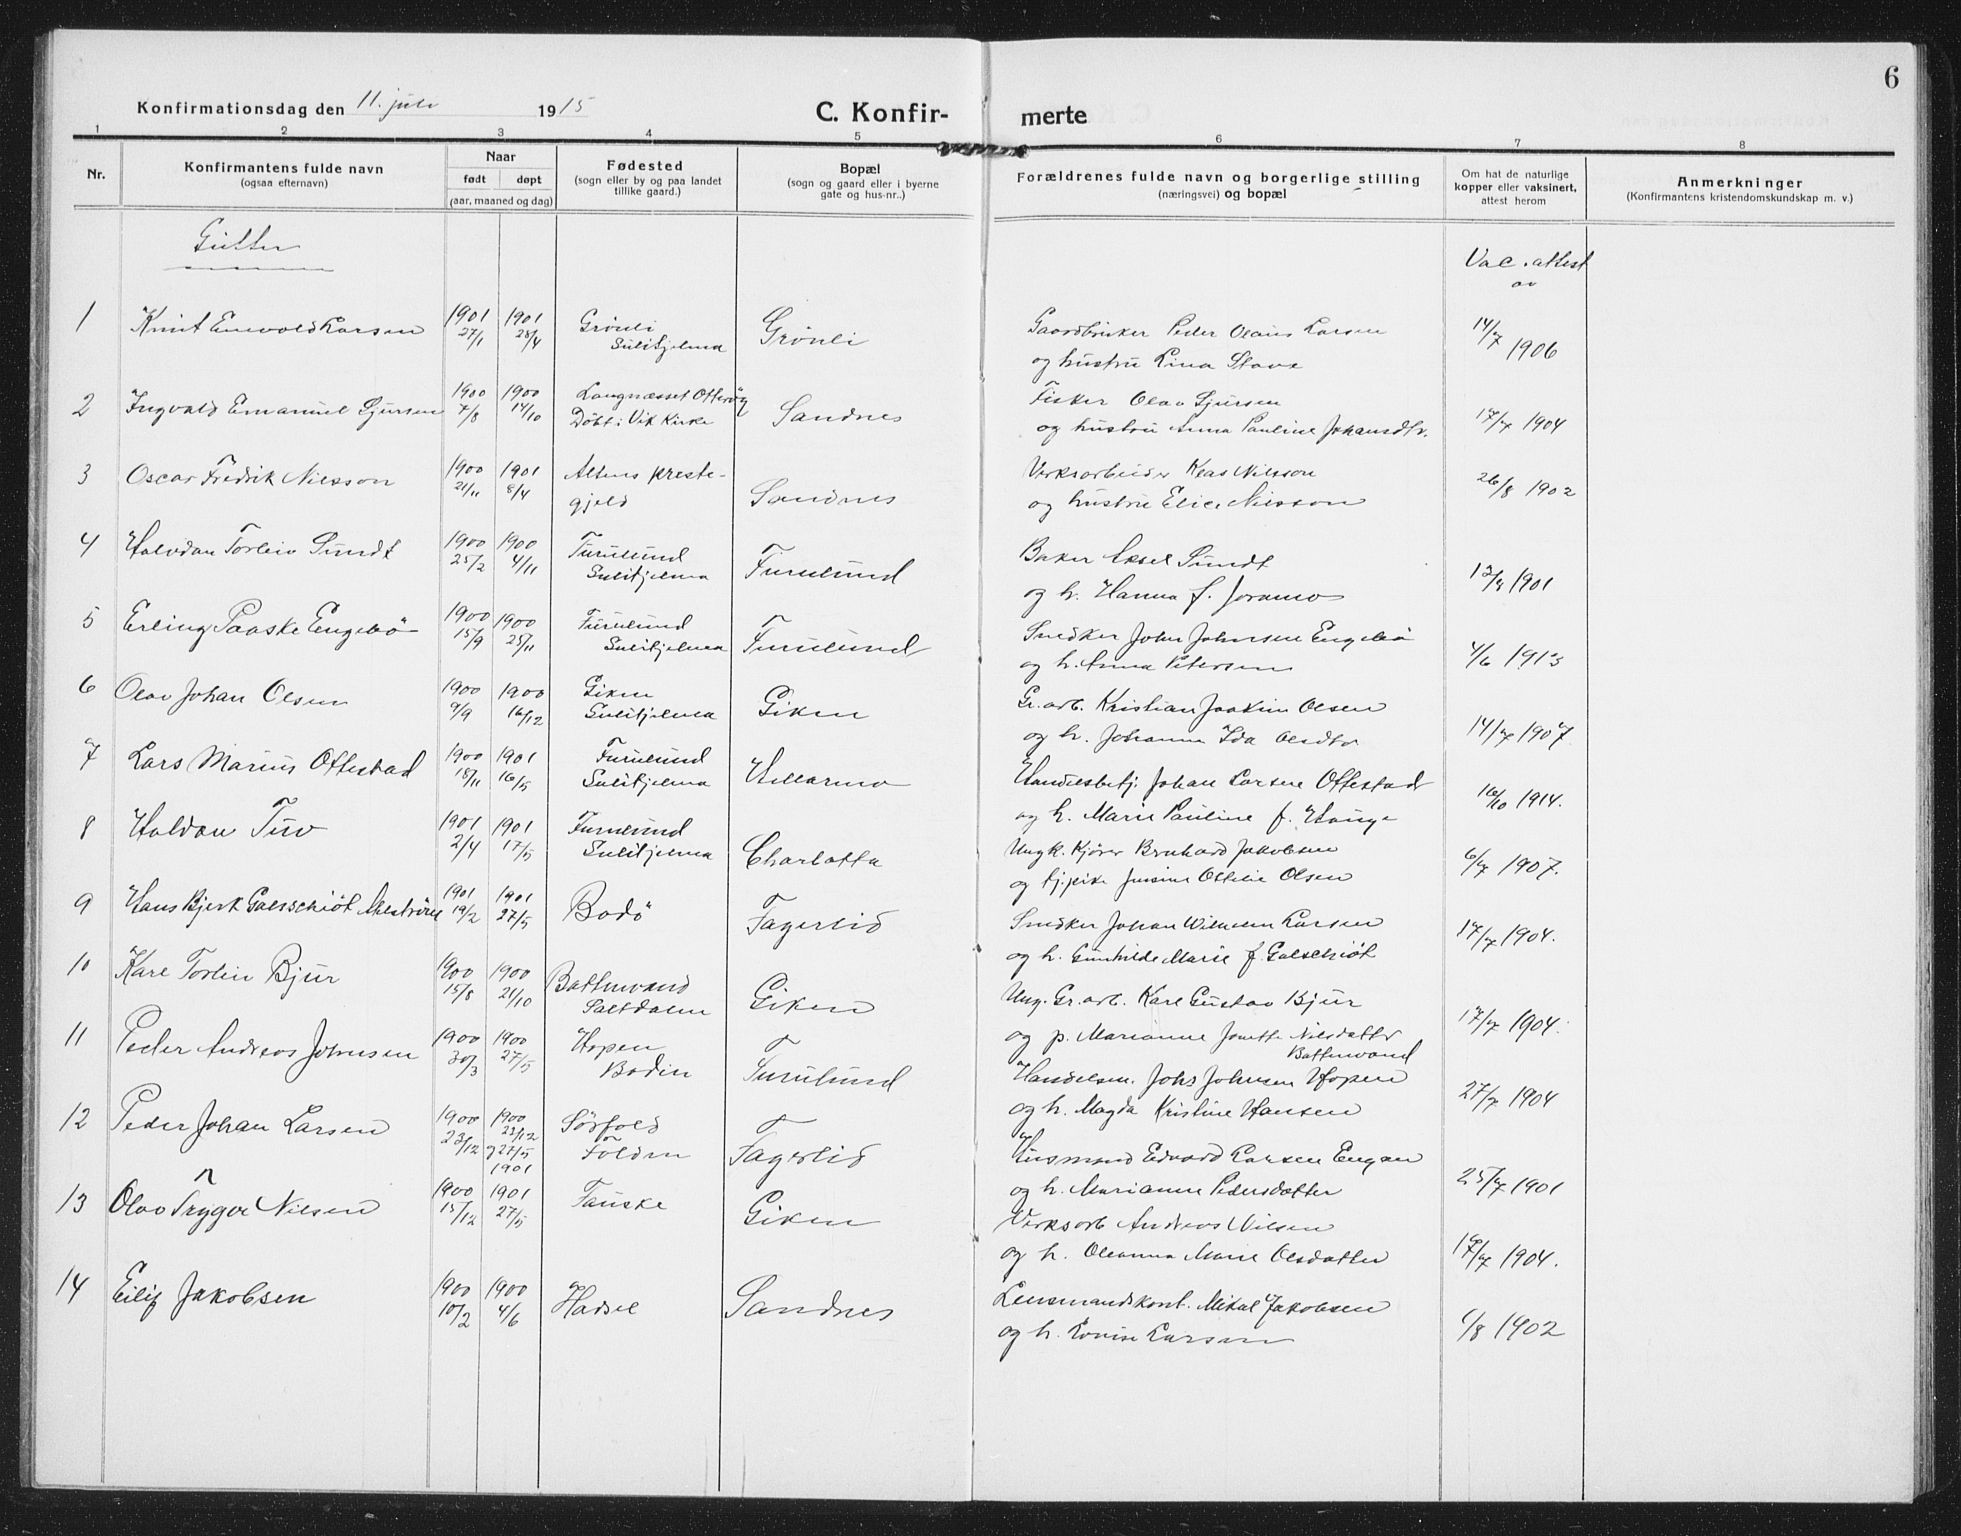 6
Konfirmationsdag den 11. juli 1915
C. Konfir- merte
1 2 3 4 5 6 7 8
Nr.
Konfirmantens fulde navn
(ogsaa efternavn)
Naar
født døpt
(aar, maaned og dag)
Fødested
(sogn eller by og paa landet
tillike gaard.)
Bopæl
(sogn og gaard eller i byerne
gate og hus-nr.)
Forældrenes fulde navn og borgerlige stilling
(næringsvei) og bopæl
Om hat de naturlige
kopper eller vaksinert,
attest herom
Anmerkninger
(Konfirmantens kristendomskundskap m. v.)
Gutter
Vac. attest
av
1 Knut Enevold Larsen 1901 27/1 1901 28/4 Grönli Sulitjelma Grönli
Gaardbruker Peder Olaus Larsen
og hustru Lina Stavs
14/7 1906
2 Ingvald Emanuel Sjursen 1900 7/8 1900 14/10 Langnæsset Otteröy Döbt i Vik Kirke Sandnes
Fisker Olav Sjursen
og hustru Anna Pauline Johansdtr.
17/7 1904
3 Oscar Fredrik Nilsson 1900 21/11 1901 8/4 Altens preste-gjeld Sandnes
Verksarbeider Klas Nilsson
og hustru Elise Nilsson
26/8 1902
4 Halvdan Torleiv Sundt 1900 25/2 1900 4/11 Furulund Sulitjelma Furulund
Baker Aksel Sundt
og h. Hanna f. Joramo
12/8 1901
5 Erling Paaske Engebö 1900 15/9 1900 25/11 Furulund Sulitjelma Furulund
Snedker John Johnsen Engebö
og h. Anna Petersen
4/6 1913
6 Olav Johan Olsen 1900 9/9 1900 16/12 Giken Sulitjelma Giken
Gr. arb. Kristian Joakim Olsen
og h. Johanna Ida Olsdtr
14/7 1907
7 Lars Marius Ottestad 1900 18/11 1901 16/5 Furulund Sulitjelma Hellarmo
Handelsbetj. Johan Larsen Ottestad
og h. Marie Pauline f. Hauge
16/10 1914.
8 Haldan Tuv 1901 2/4 1901 17/5 Furulund Sulitjelma Charlotta
Ungk. Kjörer Bernhard Jakobsen
og tj.pike Jensine Ottelie Olsen
6/7 1907.
9 Hans Bjerk Galschiöt 1901 19/2 1901 27/5 Bodö Fagerlid
Snedker Johan Wilhelm Larsen
og h. Gunhilde Marie f. Galschiöt
17/7 1904.
10 Karl Torlein Bjur 1900 15/8 1900 21/10 Batnvand Saltdalen Giken
Ung. Gr. arb. Karl Gustav Bjur
og p. Marianne Jonette Nilsdatter
Batnvand
17/7 1904.
11 Peder Andreas Johnsen 1900 30/3 1900 27/5 Hopen Bodin Furulund
Handelsm. Johs Johnsen Hopen
og h. Magda Kristine Hansen
27/7 1904
12 Peder Johan Larsen 1900 22/12 1900 23/12 og 27/5 1901 Sörfold Folden Fagerlid
Husmand Edvard Larsen Engan
og h. Marianne Pedersdatter
25/7 1901
13 Olav Trygve Nilsen 1900 15/12 1901 27/5 Fauske Giken
Verksarb Andreas Nilsen
og h. Oleanna Marie Olsdatter
17/7 1904.
14 Eilif Jakobsen 1900 10/2 1900 4/6 Hadsel Sandnes
Lensmandskont. Mikal Jakobsen
og h. Lovise Larsen
1/8 1902